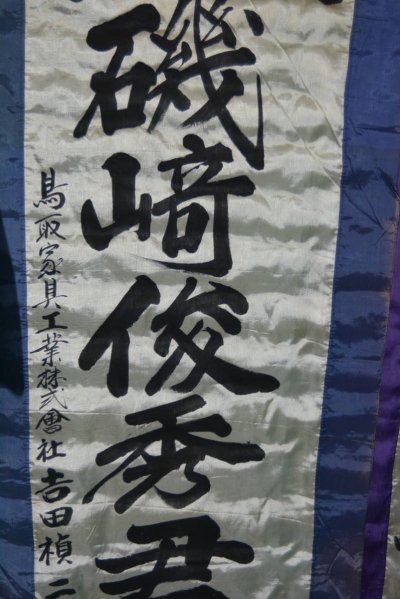 磯﨑俊秀君
鳥取家具工業株式會社 吉田禎二